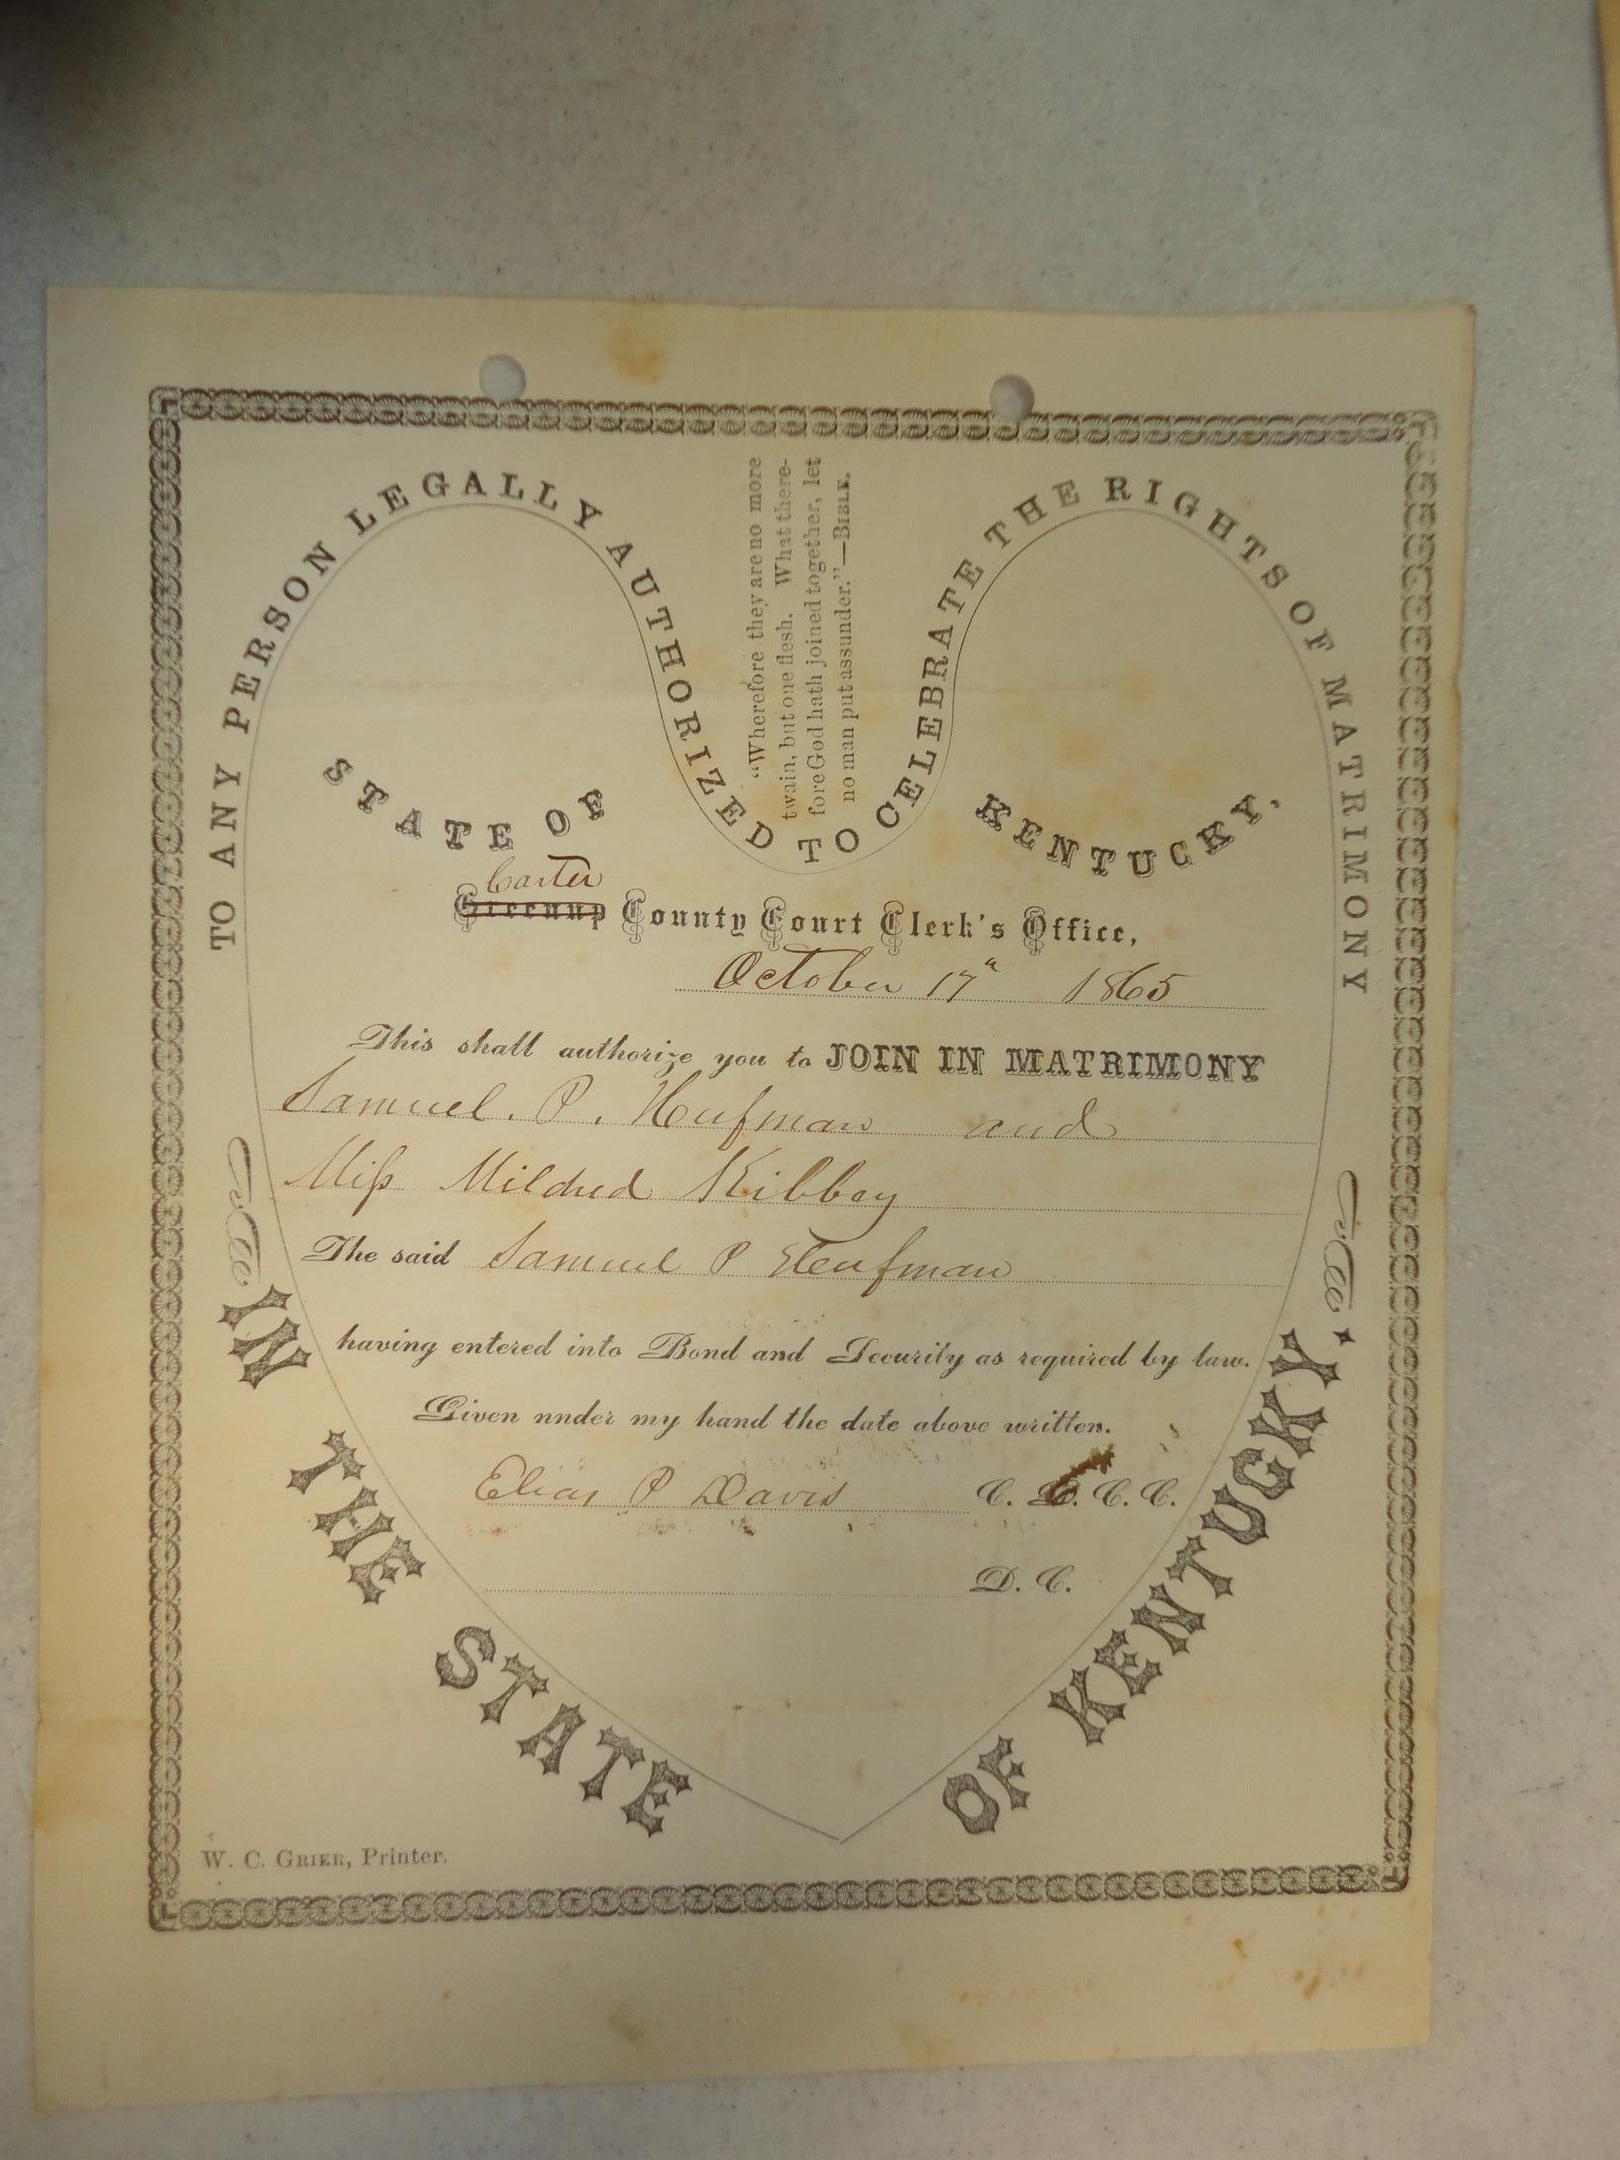 TO ANY PERSON LEGALLY AUTHORIZED TO CELEBRATE THE RIGHTS OF MATRIMONY
IN THE STATE OF KENTUCKY.
"Wherefore they are no more
twain, but one flesh. What there-
fore God hath joined together, let
no man put assunder."—BIBLE.
STATE OF KENTUCKY,
Carter
Greenup County Court Clerk's Office,
October 17th 1865
This shall authorize you to JOIN IN MATRIMONY
Samuel. P. Hufman and
Miss Mildred Kibbey
The said Samuel P Hufman
having entered into Bond and Security as required by law.
Given nnder my hand the date above written.
Elias P Davis C. C. C. C.
D. C.
W. C. GRIER, Printer.